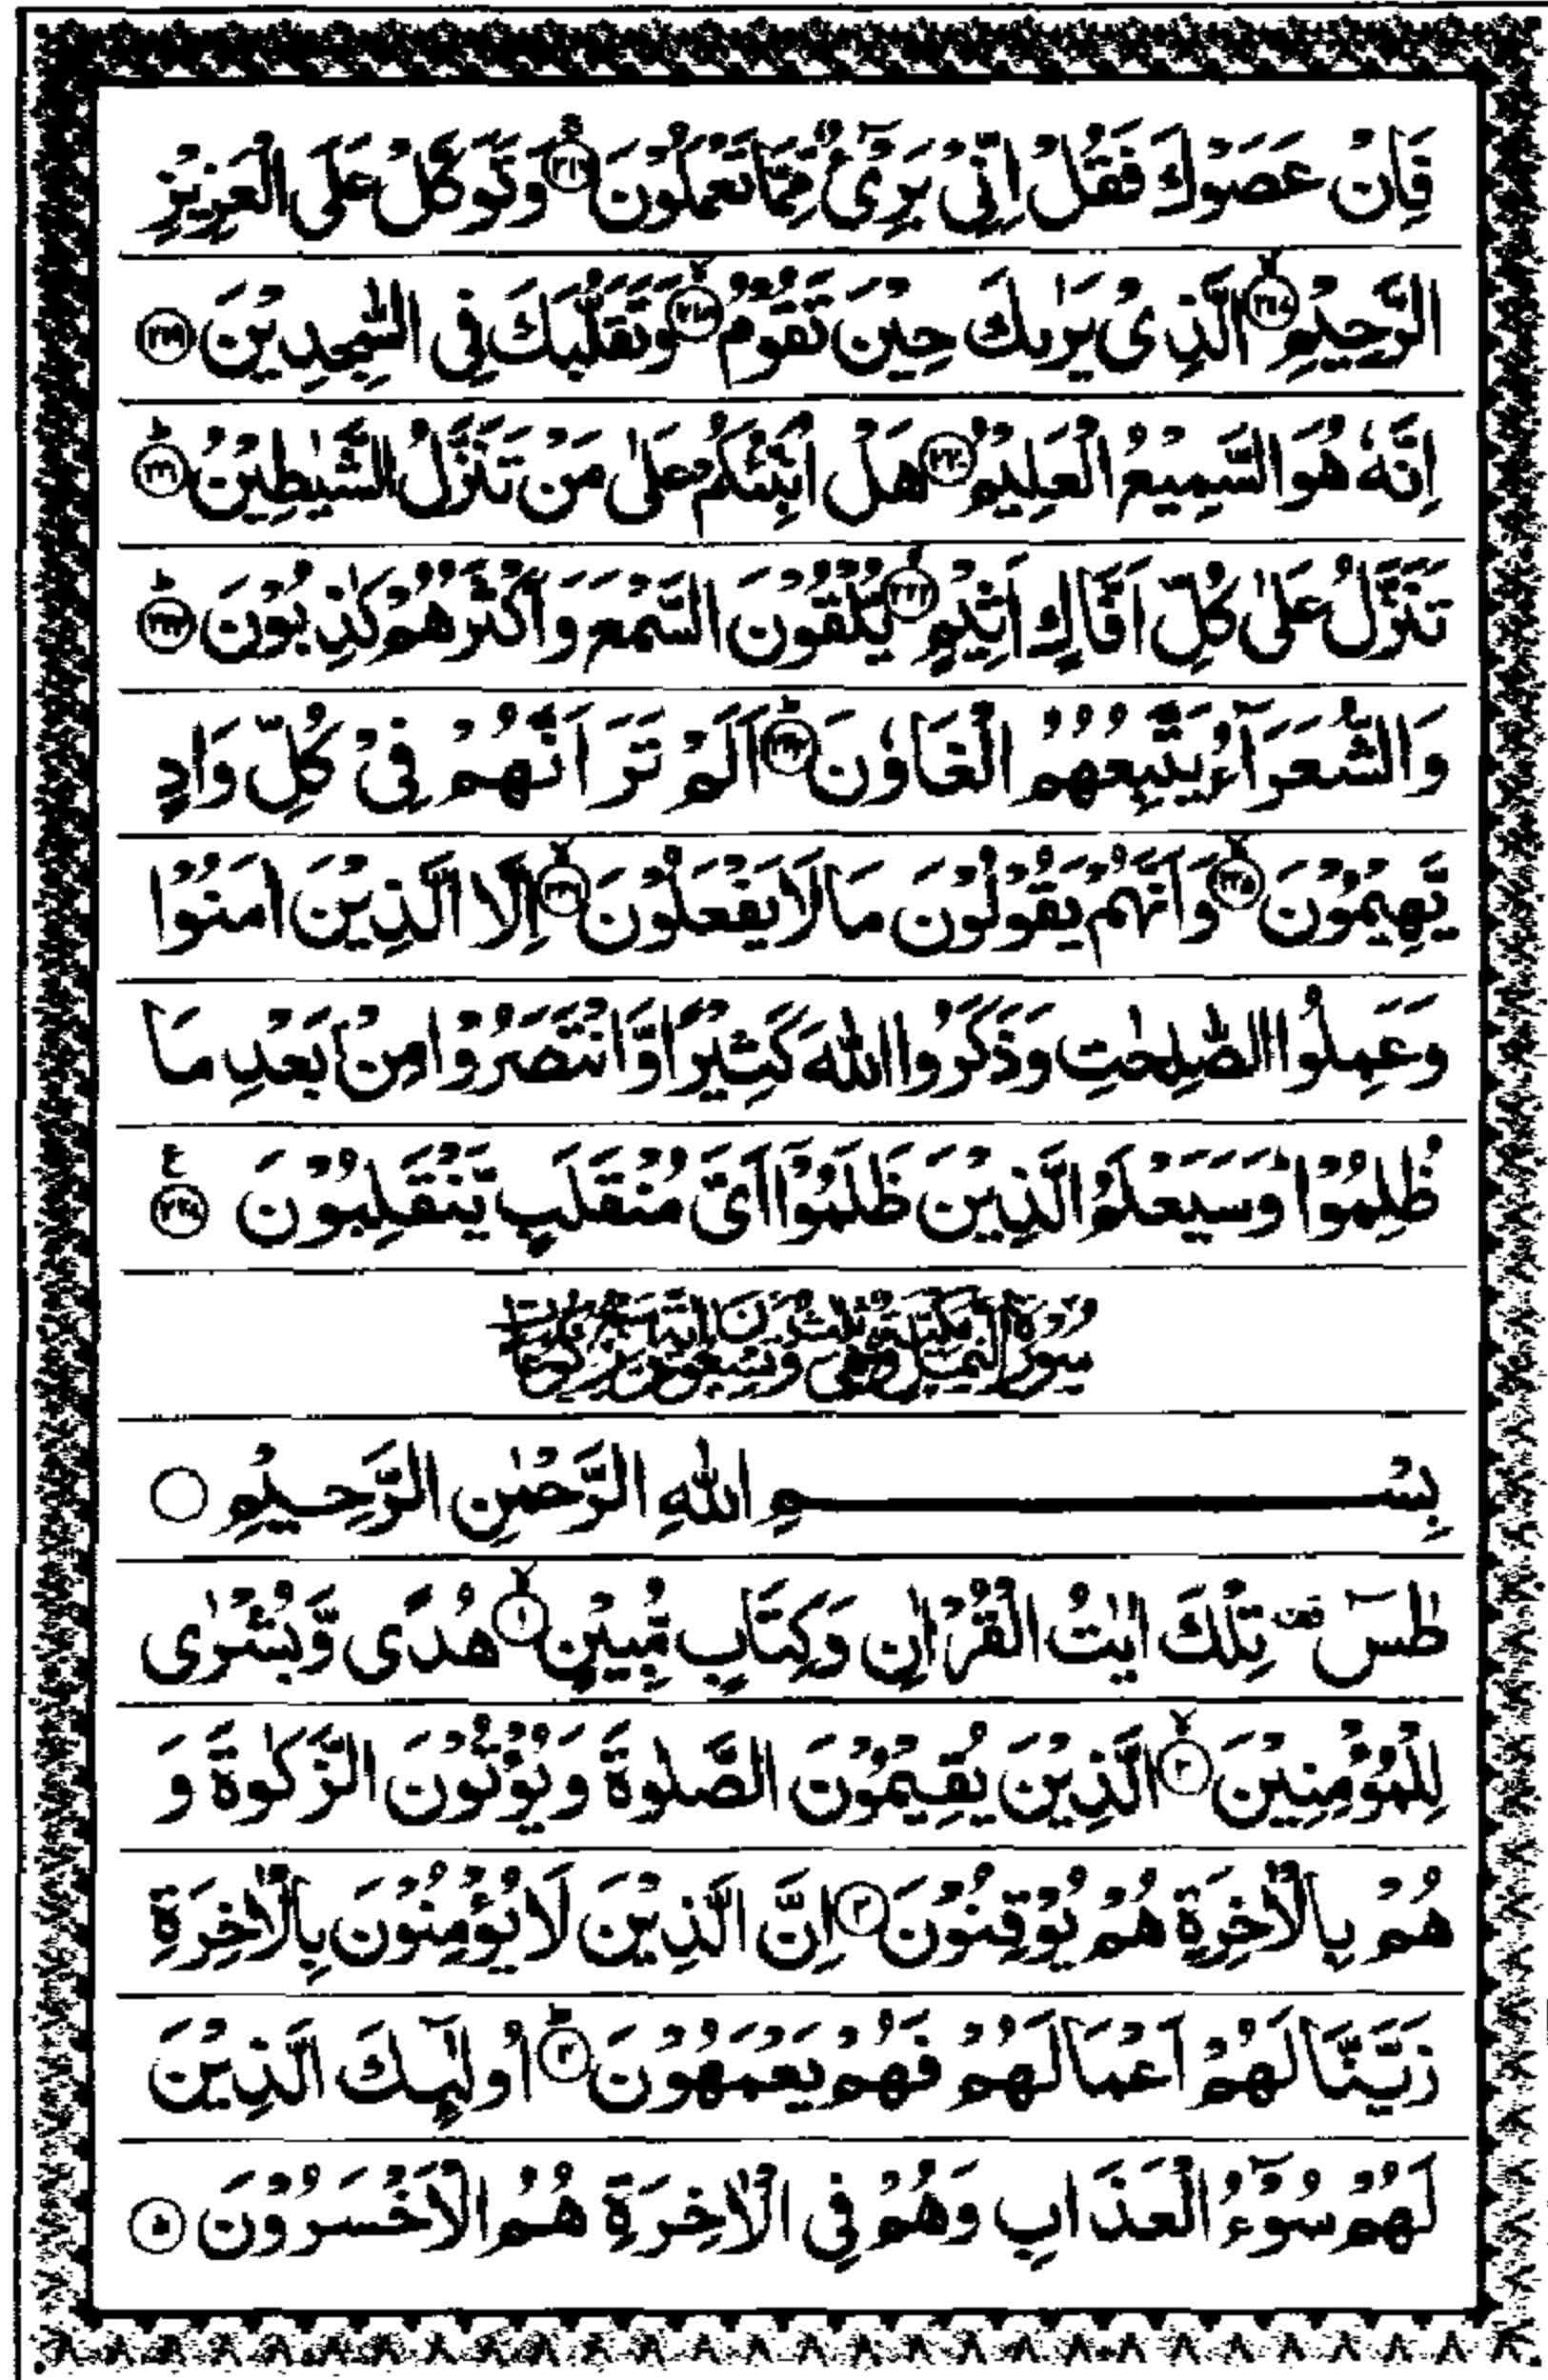 فَاِنْ عَصَوْكَ فَقُلْ اِنِّیْ بَرِیْٓءٌ مِّمَّا تَعْمَلُوْنَ ﴿۲۱۶﴾ وَتَوَكَّلْ عَلَی الْعَزِیْزِ
الرَّحِیْمِ ﴿۲۱۷﴾ الَّذِیْ یَرٰىكَ حِیْنَ تَقُوْمُ ﴿۲۱۸﴾ وَتَقَلُّبَكَ فِی السّٰجِدِیْنَ ﴿۲۱۹﴾
اِنَّهٗ هُوَ السَّمِیْعُ الْعَلِیْمُ ﴿۲۲۰﴾ هَلْ اُنَبِّئُكُمْ عَلٰی مَنْ تَنَزَّلُ الشَّیٰطِیْنُ ﴿۲۲۱﴾
تَنَزَّلُ عَلٰی كُلِّ اَفَّاكٍ اَثِیْمٍ ﴿۲۲۲﴾ یُّلْقُوْنَ السَّمْعَ وَاَكْثَرُهُمْ كٰذِبُوْنَ ﴿۲۲۳﴾
وَالشُّعَرَآءُ یَتَّبِعُهُمُ الْغَاوٗنَ ﴿۲۲۴﴾ اَلَمْ تَرَ اَنَّهُمْ فِیْ كُلِّ وَادٍ
یَّهِیْمُوْنَ ﴿۲۲۵﴾ وَاَنَّهُمْ یَقُوْلُوْنَ مَا لَا یَفْعَلُوْنَ ﴿۲۲۶﴾ اِلَّا الَّذِیْنَ اٰمَنُوْا
وَعَمِلُوا الصّٰلِحٰتِ وَذَكَرُوا اللّٰهَ كَثِیْرًا وَّانْتَصَرُوْا مِنْۢ بَعْدِ مَا
ظُلِمُوْا ؕ وَسَیَعْلَمُ الَّذِیْنَ ظَلَمُوْۤا اَیَّ مُنْقَلَبٍ یَّنْقَلِبُوْنَ ﴿۲۲۷﴾
سُوْرَةُ النَّمْلِ مَكِّيَّةٌ
بِسْمِ اللّٰهِ الرَّحْمٰنِ الرَّحِیْمِ
طٰسٓ ۫ تِلْكَ اٰیٰتُ الْقُرْاٰنِ وَكِتَابٍ مُّبِیْنٍ ﴿۱﴾ هُدًی وَّبُشْرٰی
لِلْمُؤْمِنِیْنَ ﴿۲﴾ الَّذِیْنَ یُقِیْمُوْنَ الصَّلٰوةَ وَیُؤْتُوْنَ الزَّكٰوةَ وَ
هُمْ بِالْاٰخِرَةِ هُمْ یُوْقِنُوْنَ ﴿۳﴾ اِنَّ الَّذِیْنَ لَا یُؤْمِنُوْنَ بِالْاٰخِرَةِ
زَیَّنَّا لَهُمْ اَعْمَالَهُمْ فَهُمْ یَعْمَهُوْنَ ﴿۴﴾ اُولٰٓىِٕكَ الَّذِیْنَ
لَهُمْ سُوْٓءُ الْعَذَابِ وَهُمْ فِی الْاٰخِرَةِ هُمُ الْاَخْسَرُوْنَ ﴿۵﴾